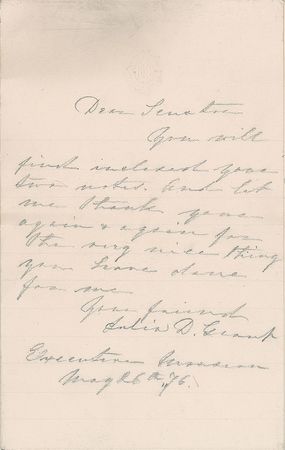 Dear Senator
You will
find inclosed your
two notes. And let
me thank you
again & again for
the very nice thing
you have done
for me
Your friend
Julia D. Grant
Executive Mansion
May 26th, 76.